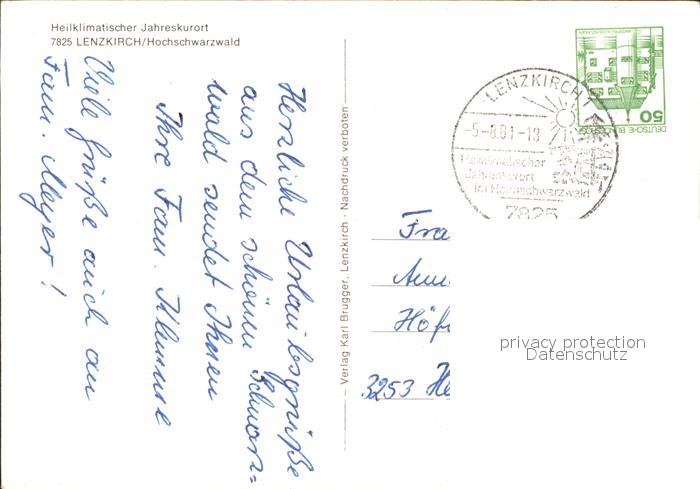 Heilklimatischer Jahreskurort
7825 LENZKIRCH/Hochschwarzwald
Herzliche Urlaubsgrüße
aus dem schönen Schwarz=
wald sendet Ihnen
Ihre Fam.
Viele Grüße auch an
Fam. Meyer!
— Verlag Karl Brugger, Lenzkirch - Nachdruck verboten —
LENZKIRCH 1
-5.-8.81-13
Heilklimatischer
Jahreskurort
im Hochschwarzwald
7825
50
DEUTSCHE BUN
Fra
Höf
3253 He
privacy protection
Datenschutz